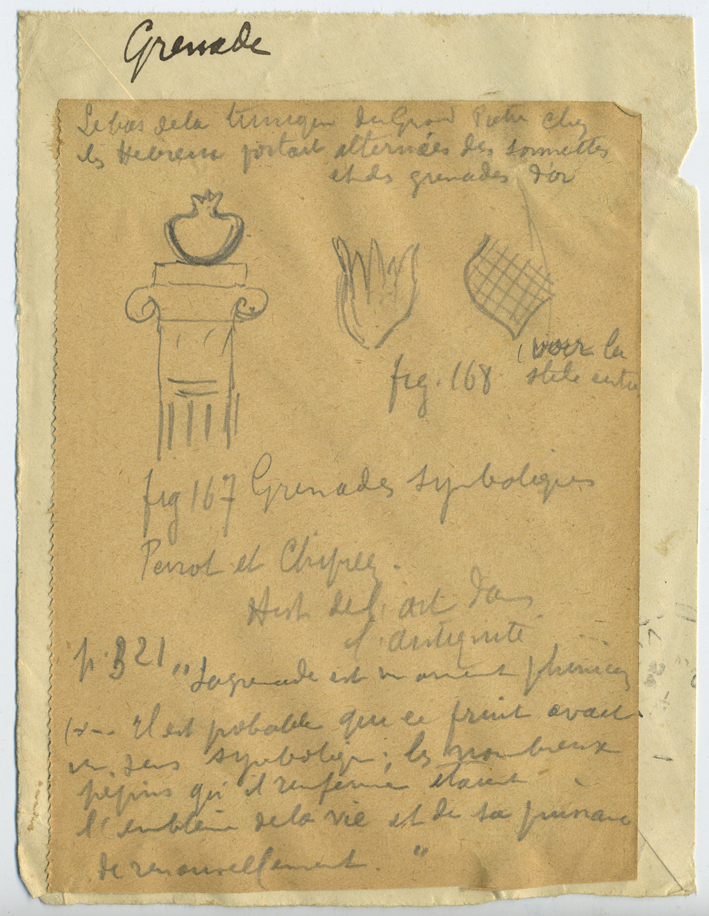 Grenade
Le bas de la tunique du Grand Prêtre chez
les Hebreux portait alternées des sonnettes
et des grenades d'or
(voir la
fig. 168 stele entre
fig 167 Grenades symboliques
Perrot et Chipiez.
Hist de l'art dans
l'antiquité
p. 321 "La grenade est un ornement phenicien
Il est probable que ce fruit avait
un sens symbolique; les nombreux
pépins qu'il renferme étaient
l'emblème de la vie et de sa puissance
de renouvellement. "